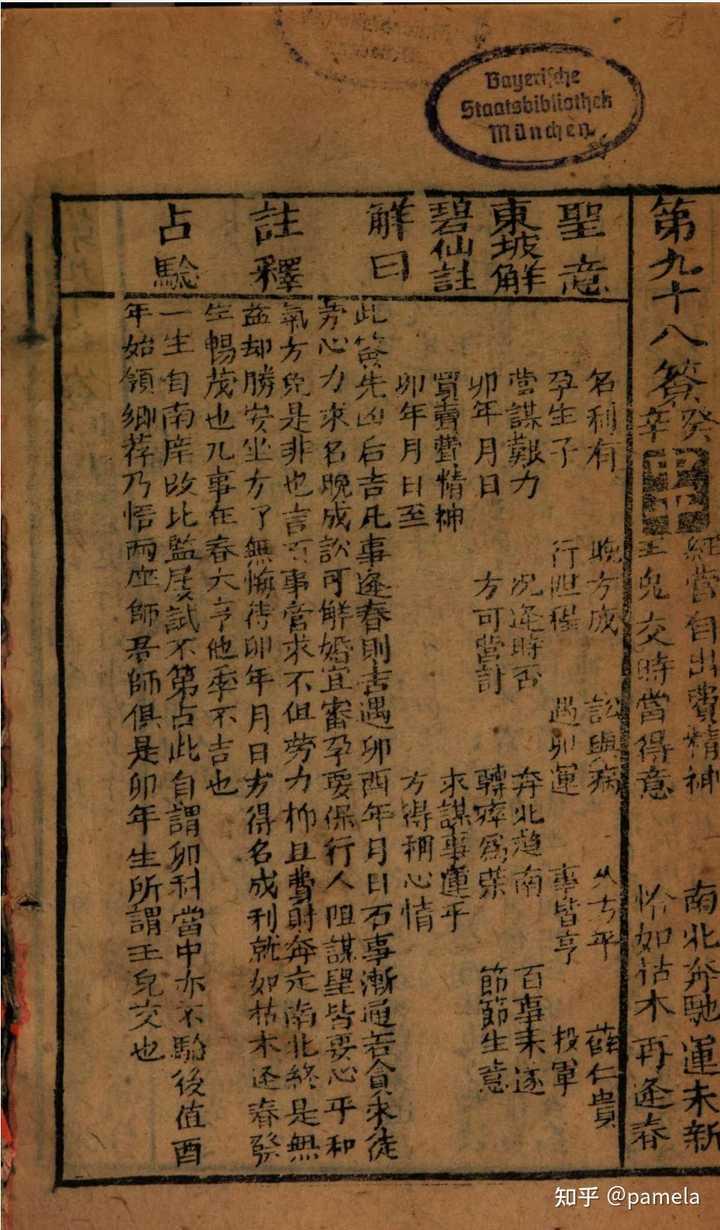 Bayerische
Staatsbibliothek
München
第九十八籖
癸
辛
經營自出費精神 南北奔馳運未新
玉兔交時當得意 恰如枯木再逢春
聖意
名利有 晚方成 訟與病 久方平 薛仁貴
孕生子 行阻程 遇卯運 事皆亨 投軍
東坡解
營謀艱力 况逢時否 奔北趨南 百事未遂
卯年月日 方可營討 轉瘁爲榮 節節生意
碧仙註
買賣費精神 求謀事運平
卯年月日至 方得稱心情
解曰
此簽先凶后吉凡事逢春則吉遇卯酉年月日百事漸通若貪求徒
勞心力求名晚成訟可解婚宜審孕要保行人阻謀望皆要心平和
氣方免是非也
註釋
言百事營求不但勞力抑且費財奔走南北終是無
益却勝安坐方了無悔待卯年月日方得名成利就如枯木逢春發
生暢茂也凡事在春大亨他季不吉也
占驗
一生自南庠改北監屡試不第占此自謂卯科當中亦不驗後值酉
年始領鄉荐乃悟兩座師君師俱是卯年生所謂玉兔交也
知乎 @pamela